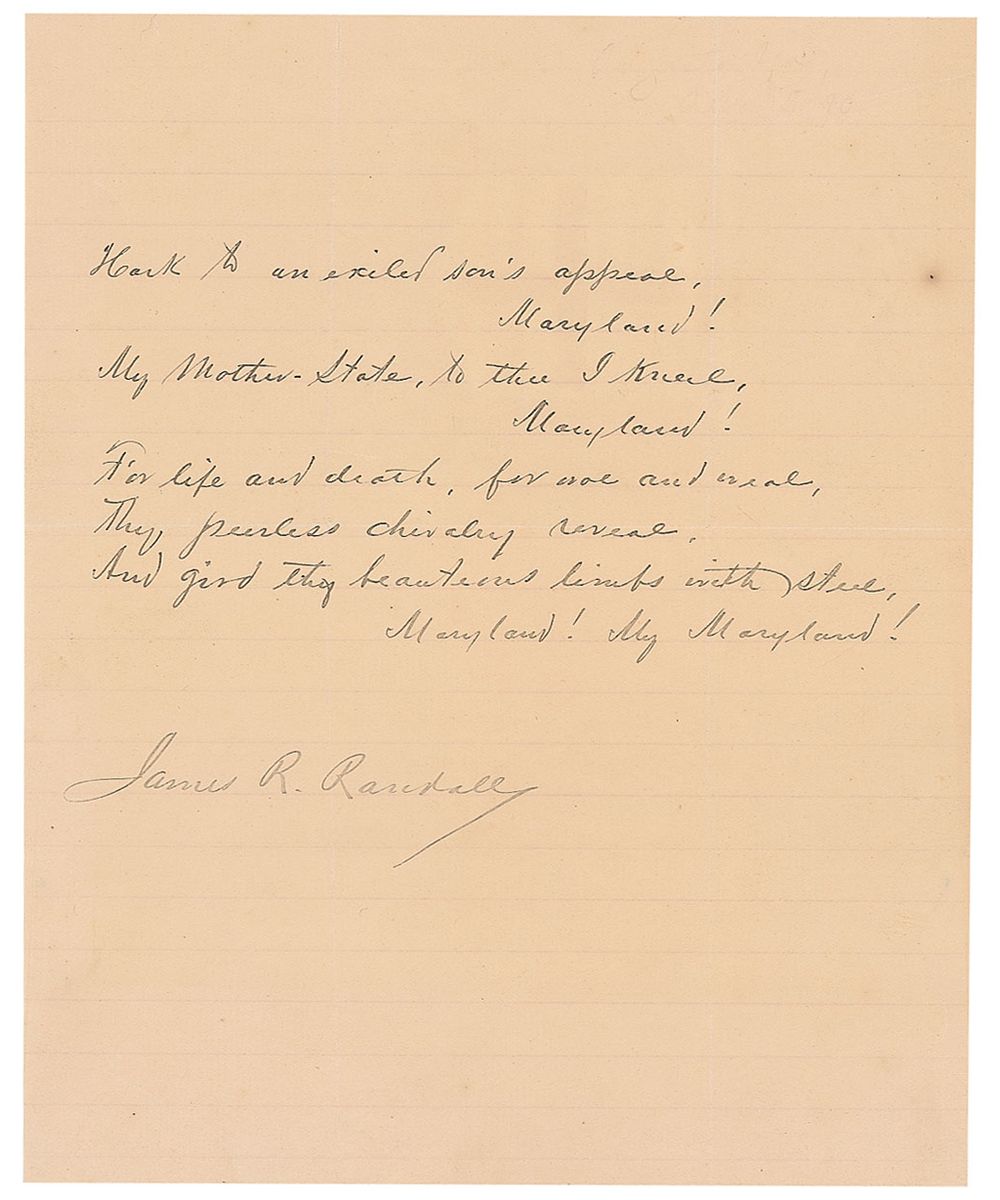 Hark to an exiled son's appeal,
Maryland!
My Mother-State, to thee I kneel,
Maryland!
For life and death, for woe and weal,
Thy peerless chivalry reveal,
And gird thy beauteous limbs with steel,
Maryland! My Maryland!
James R. Randall